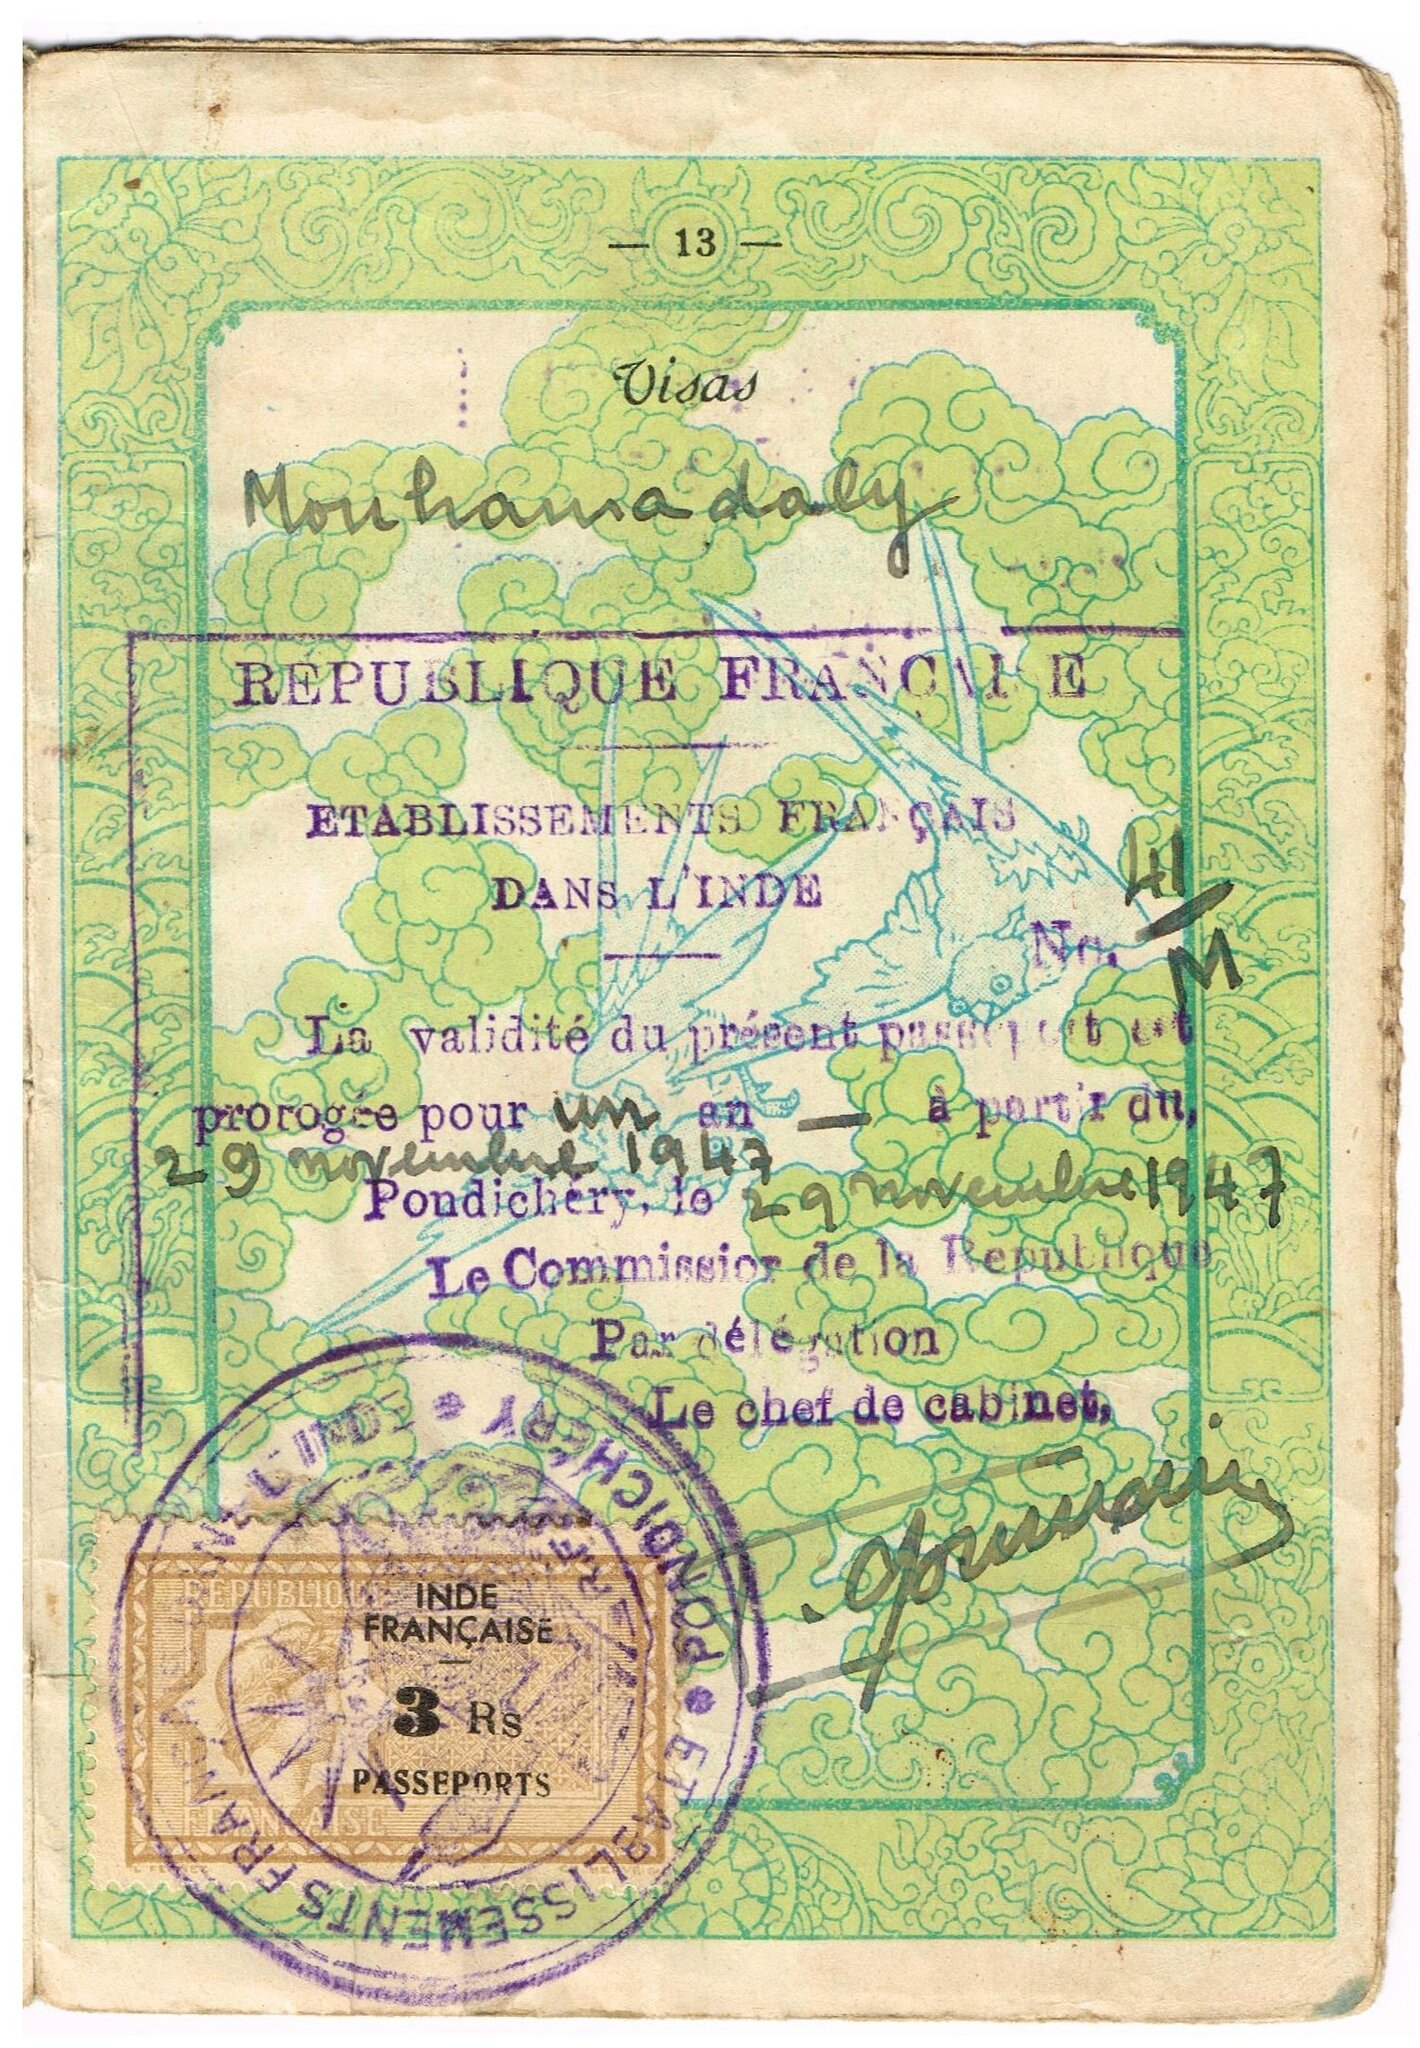 — 13 —
Visas
Mouhamadaly
RÉPUBLIQUE FRANÇAISE
ETABLISSEMENTS FRANÇAIS
DANS L'INDE
No. 41/M
La validité du présent passeport est
prorogée pour un an — à partir du,
29 novembre 1947
Pondichéry, le 29 novembre 1947
Le Commissior de la Republique
Par délégation
Le chef de cabinet,
REPUBLIQUE
INDE
FRANÇAISE
3 Rs
PASSEPORTS
FRANÇAISE
ETABLISSEMENTS FRANÇAIS DANS L'INDE * PONDICHÉRY *